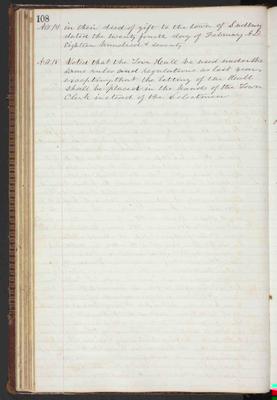 108
Art 14 in their deed of gift to the town of Sudbury
dated the twenty fourth day of February A.D.
Eighteen hundred & seventy
Art 15 Voted that the Town Hall be used under the
same rules and regulations as last year
excepting that the letting of the Hall
shall be placed in the hands of the Town
Clerk instead of the Selectmen